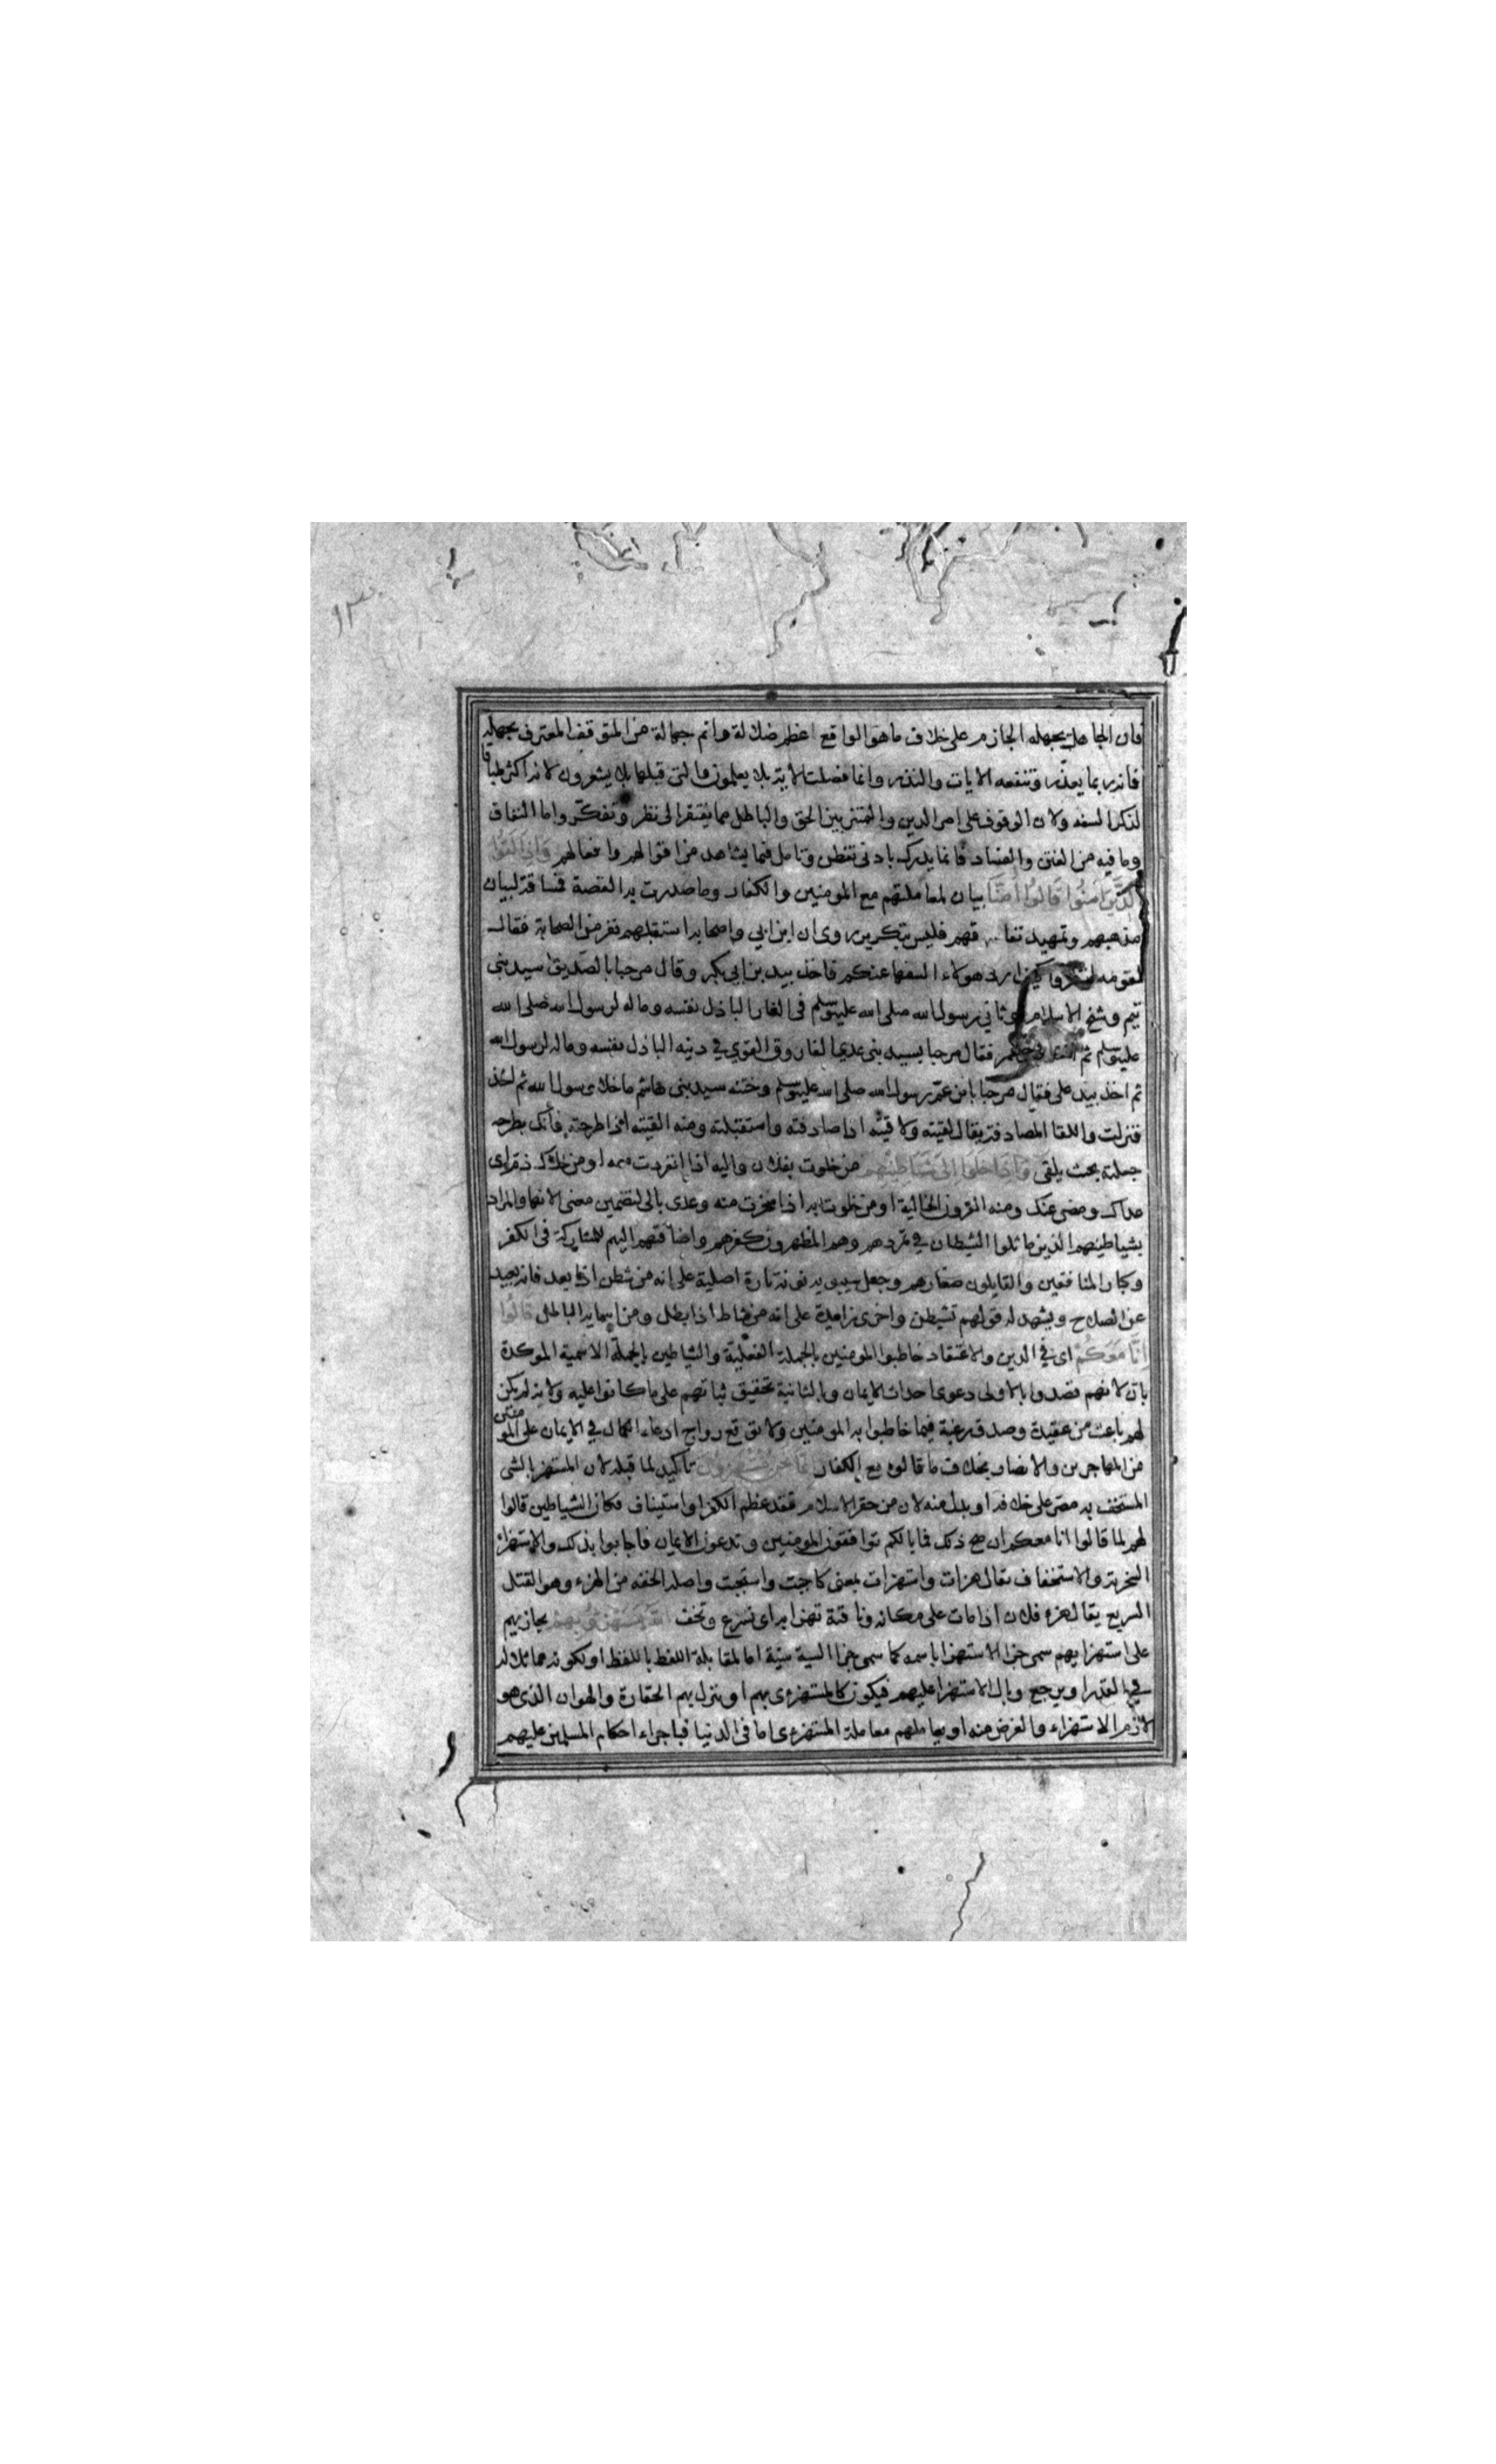 ١٣
فان الجاهل بجهله الجازم على خلاف ما هو الواقع اعظم ضلالة واتم جهالة من المتوقف المعترف بجهله
فانه ربما يعذر وتنفعه الايات والنذر وانما فصلت الاية بلا يعلمون والتى قبلها بلا يشعرون لانه اكثر طباقا
لذكر السفه ولان الوقوف على امر الدين والتمييز بين الحق والباطل مما يفتقر الى نظر وتفكر واما النفاق
وما فيه من الفتن والفساد فانما يدرك بادنى تفطن وتامل فيما يشاهد من اقوالهم وافعالهم وَاِذَا لَقُوا
الَّذِينَ اٰمَنُوا قَالُوا اٰمَنَّا بيان لمعاملتهم مع المومنين والكفار وما صدرت به القصة فمساقه لبيان
مذهبهم وتمهيد نفاقهم فليس بتكرير روى ان ابن ابي واصحابه استقبلهم نفر من الصحابة فقال
لقومه انظروا كيف ارد هولاء السفها عنكم فاخذ بيد بن ابي بكر وقال مرحبا بالصديق سيد بنى
تيم وشيخ الاسلام وثاني رسول الله صلى الله عليه وسلم فى الغار الباذل نفسه وماله لرسول الله صلى الله
عليه وسلم ثم اخذ بيد عمر فقال مرحبا بسيد بنى عدي الفاروق القوي في دينه الباذل نفسه وماله لرسول الله
ثم اخذ بيد على فقال مرحبا بابن عم رسول الله صلى الله عليه وسلم وختنه سيد بنى هاشم ما خلا رسول الله ثم
فنزلت واللقا المصادفة يقال لقيته ولاقيته اذا صادفته واستقبلته ومنه القيته اذا طرحته فانك بطرحه
جعلته بحيث يلقى وَاِذَا خَلَوْا اِلَى شَيَاطِينِهِمْ من خلوت بفلان واليه اذا انفردت معه او من خلاك ذم اى
عداك ومضى عنك ومنه القرون الخالية او من خلوت به اذا سخرت منه وعدى بالى لتضمين معنى الانها والمراد
بشياطينهم الذين ماثلوا الشيطان في تمردهم وهم المظهرون كفرهم واضافتهم اليهم للمشاركة فى الكفر
وكبار المنافقين والقايلون صغارهم وجعل سيبويه نونه تارة اصلية على انه من شطن اذا بعد فانه بعيد
عن الصلاح ويشهد له قولهم تشيطن واخرى زايدة على انه من شاط اذا بطل ومن اسمايه الباطل قَالُوا
اِنَّا مَعَكُمْ اى في الدين والاعتقاد خاطبوا المومنين بالجملة الفعلية والشياطين بالجملة الاسمية الموكدة
بان لانهم قصدوا بالاولى دعوى احداث الايمان وبالثانية تحقيق ثباتهم على ما كانوا عليه ولانه لم يكن
لهم باعث من عقيدة وصدق رغبة فيما خاطبوا به المومنين ولا توقع رواج ادعاء الكمال في الايمان على المومنين
من المهاجرين والانصار بخلاف ما قالوه مع الكفار اِنَّمَا نَحْنُ مُسْتَهْزِؤُنَ تاكيد لما قبله لان المستهزا بالشى
المستخف به مصر على خلافه او بدل منه لان من حقر الاسلام فقد عظم الكفر او استيناف فكان الشياطين قالوا
لهم لما قالوا انا معكم ان صح ذلك فما بالكم توافقون المومنين وتدعون الايمان فاجابوا بذلك والاستهزاء
السخرية والاستخفاف يقال هزات واستهزات بمعنى كاجبت واستجبت واصله الخفه من الهزء وهو القتل
السريع يقال هزء فلان اذا مات على مكانه وناقته تهزا به اى تسرع وتخف اَللّٰهُ يَسْتَهْزِئُ بِهِمْ يجازيهم
على استهزايهم سمى جزا الاستهزا باسمه كما سمى جزا السية سية اما لمقابلة اللفظ باللفظ او لكونه مماثلا له
في القدر او يرجع وبال الاستهزا عليهم فيكون كالمستهزى بهم او ينزل بهم الحقارة والهوان الذى هو
لازم الاستهزاء والغرض منه او يعاملهم معاملة المستهزى اما فى الدنيا فباجراء احكام المسلمين عليهم